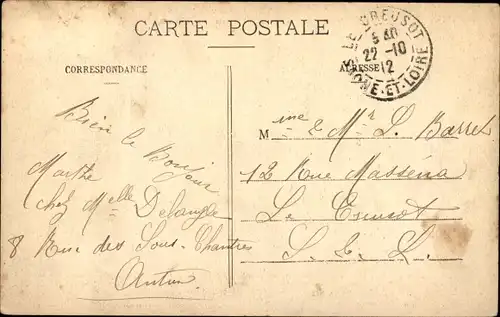 CARTE POSTALE
LE CREUSOT
22 -10
12
SAONE-ET-LOIRE
CORRESPONDANCE
ADRESSE
Bien le Bonjour
Marthe
chez Melle Delangle
8 Rue des Sous-Chantres
Autun
Mme & Mr L. Barret
12 Rue Masséna
Le Creusot
S. & L.